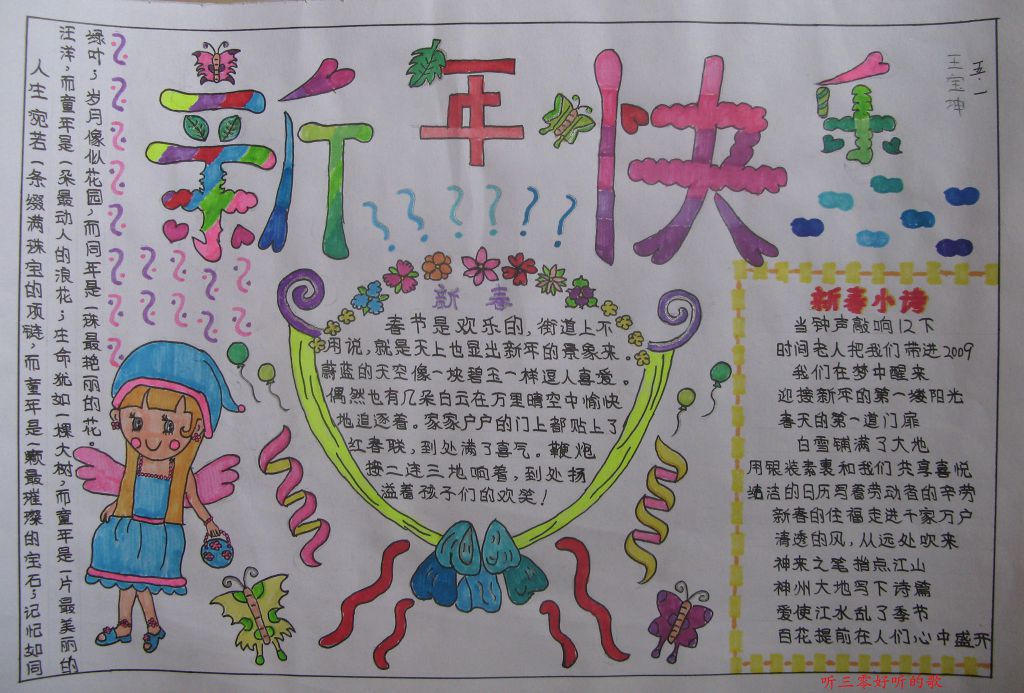 新年快乐
五.一
王宝坤
人生宛若一条缀满珠宝的项链,而童年是一颗最璀璨的宝石;记忆如同
汪洋,而童年是一朵最动人的浪花;生命犹如一棵大树,而童年是一片最美丽的
绿叶;岁月像似花园,而同年是一珠最艳丽的的花。
新春
春节是欢乐的,街道上不
用说,就是天上也显出新年的景象来。
蔚蓝的天空像一块碧玉一样逗人喜爱。
偶然也有几朵白云在万里晴空中愉快
地追逐着。家家户户的门上都贴上了
红春联,到处满了喜气。鞭炮
接二连三地响着,到处扬
溢着孩子们的欢笑!
新春小诗
当钟声敲响12下
时间老人把我们带进2009
我们在梦中醒来
迎接新年的第一缕阳光
春天的第一道门扉
白雪铺满了大地
用银装素裹和我们共享喜悦
结洁的日历写着劳动者的辛劳
新春的住福走进千家万户
清透的风,从远处吹来
神来之笔指点江山
神州大地写下诗篇
爱使江水乱了季节
百花提前在人们心中盛开
听三零好听的歌